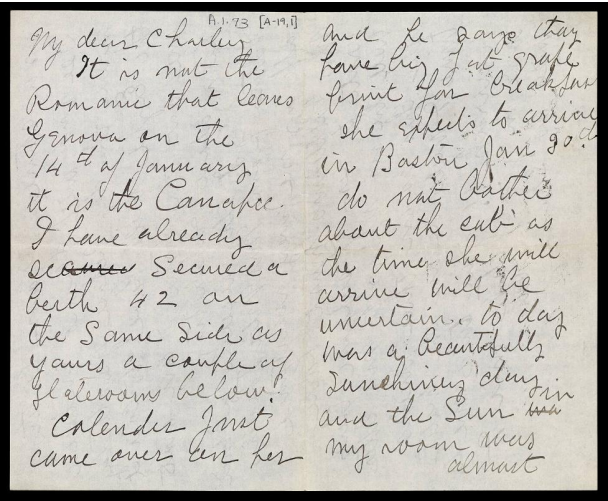 A.1.93 [A-19,1]
My dear Charley
It is not the
Romanic that leaves
Genova on the
14th of January
it is the Canopic.
I have already
Secured a
berth 42 on
the Same Side as
yours a couple of
Staterooms below.
Colender Just
came over on her
and he says they
have big fat grape
fruit for breakfast
she expects to arrive
in Boston Jan 30th
do not bother
about the cab as
the time she will
arrive will be
uncertain. to day
was a beautifully
Sunshiney day
and the Sun in
my room was
almost